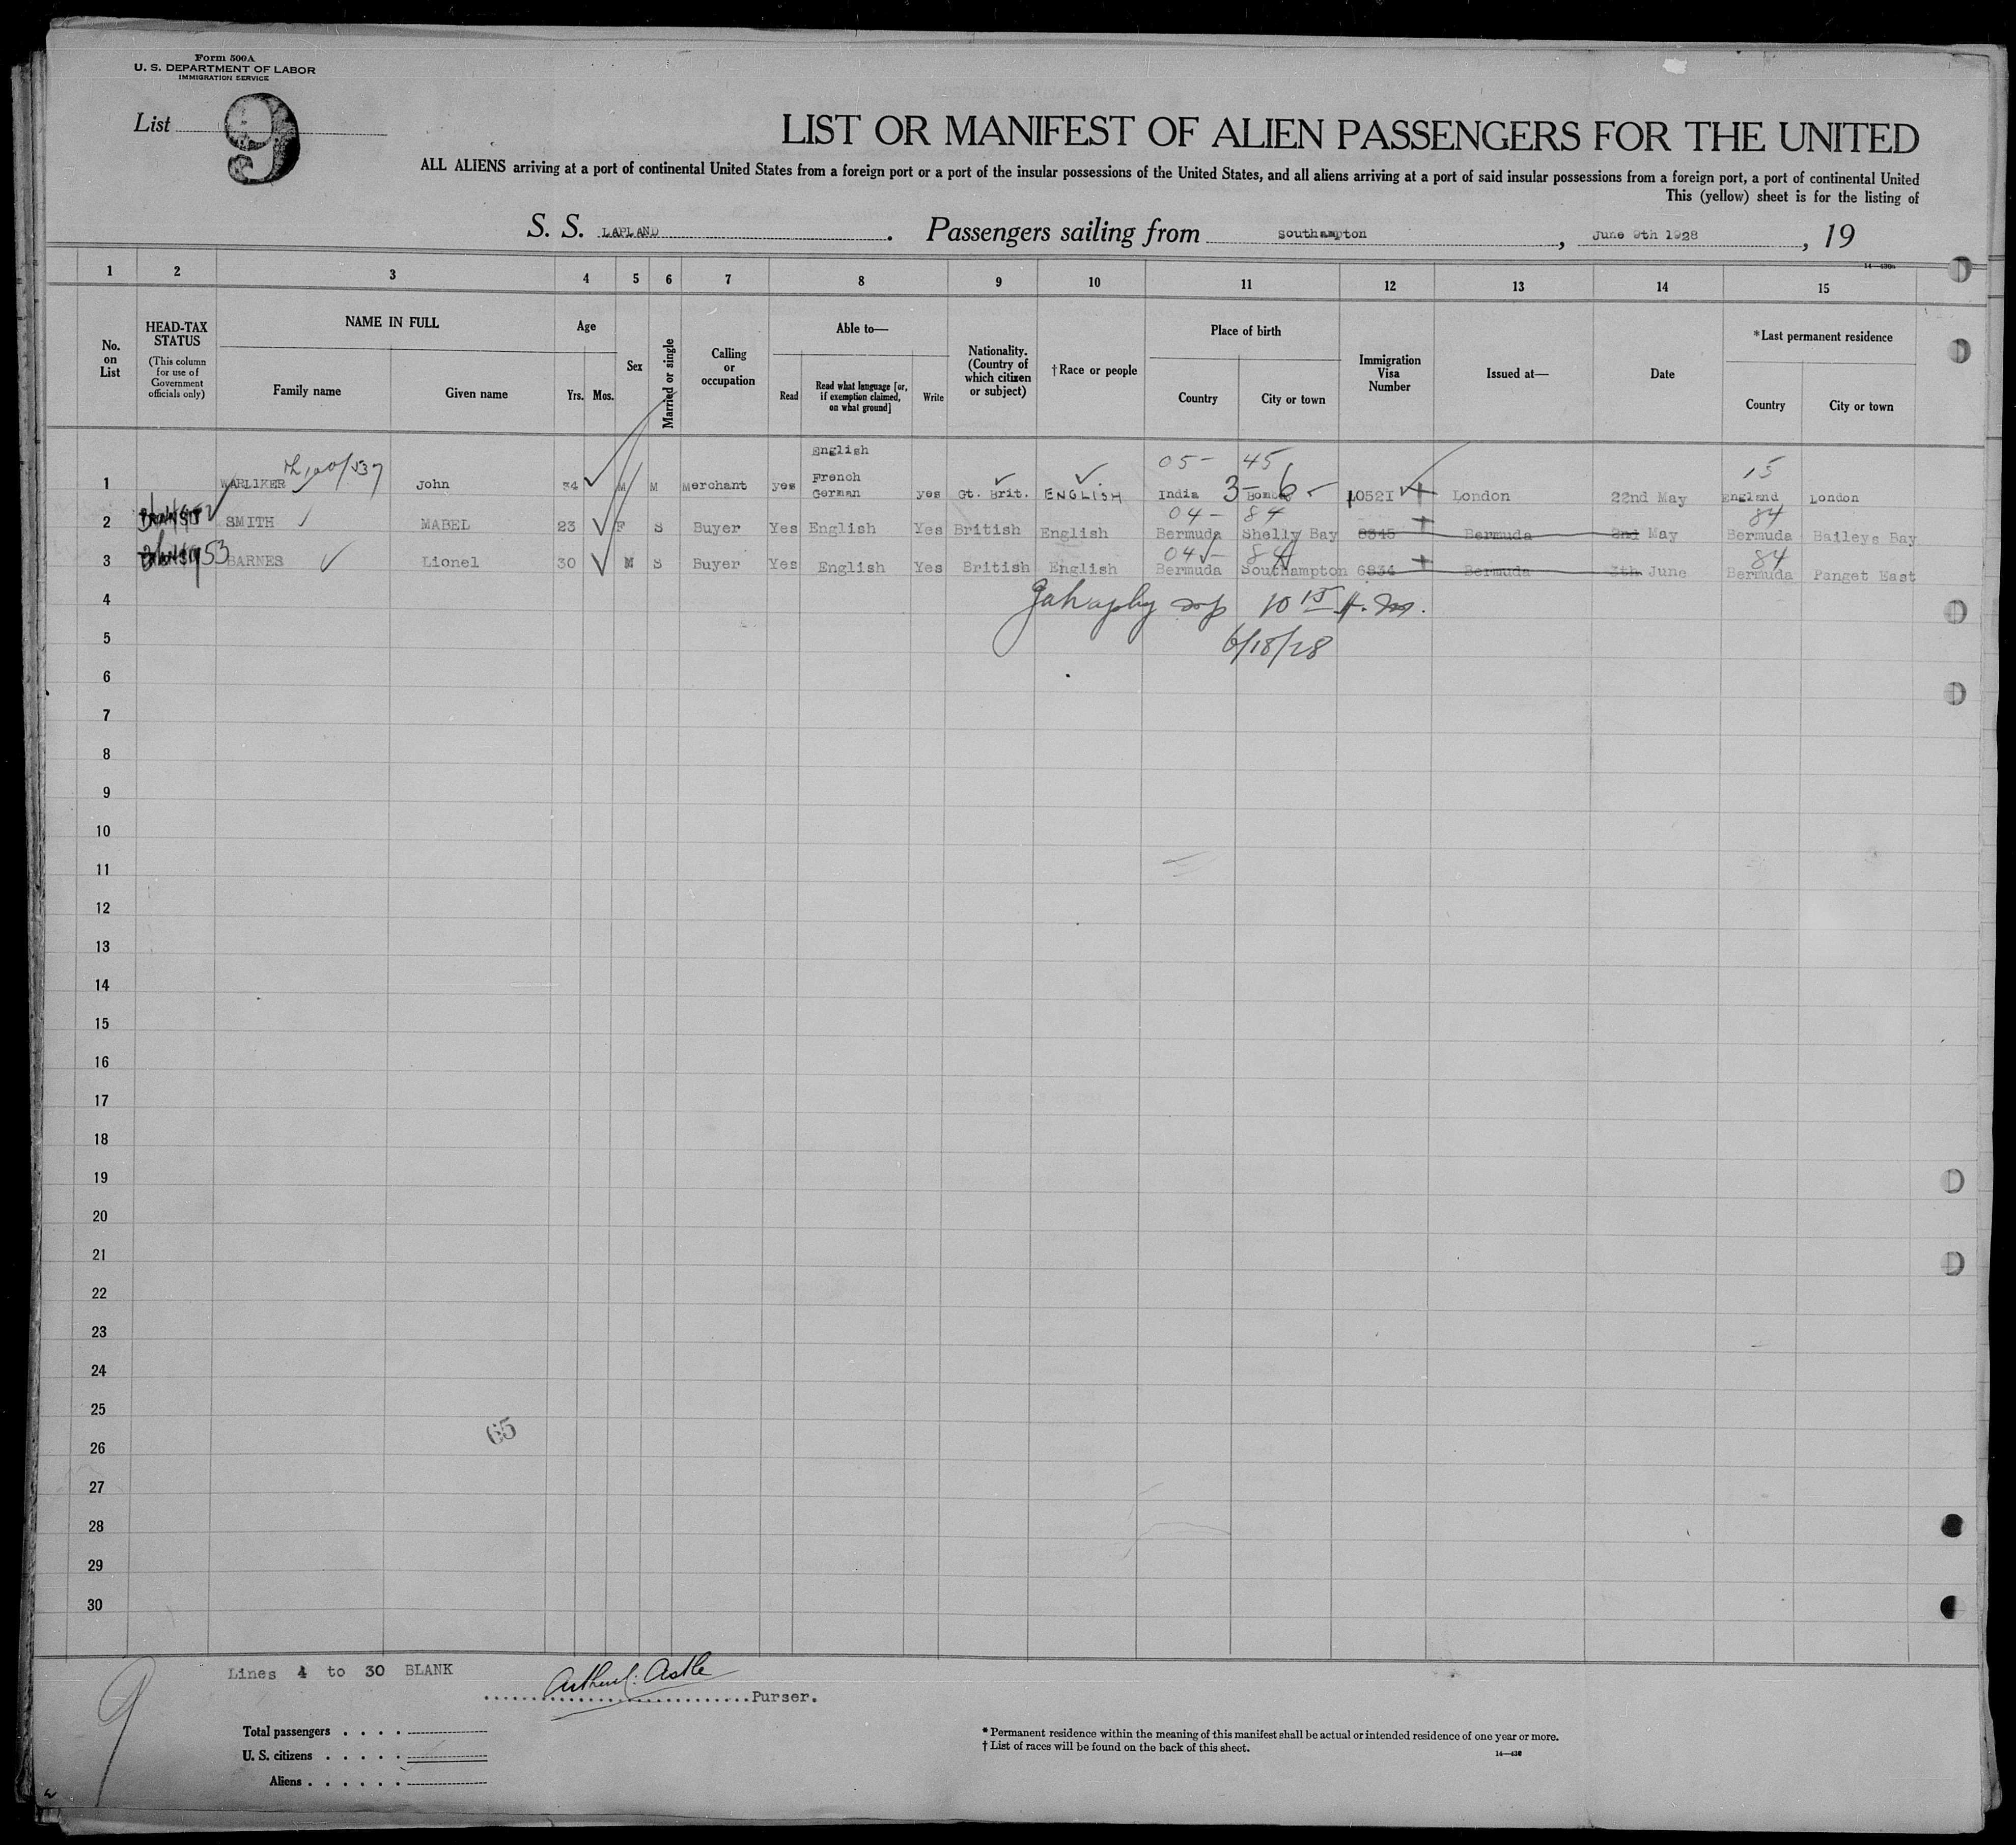 Form 500A
U. S. DEPARTMENT OF LABOR
IMMIGRATION SERVICE
List 9
LIST OR MANIFEST OF ALIEN PASSENGERS FOR THE UNITED
ALL ALIENS arriving at a port of continental United States from a foreign port or a port of the insular possessions of the United States, and all aliens arriving at a port of said insular possessions from a foreign port, a port of continental United
This (yellow) sheet is for the listing of
S. S. LAPLAND. Passengers sailing from Southampton, June 9th 1928, 19
14—430a
1 2 3 4 5 6 7 8 9 10 11 12 13 14 15
No. on List
HEAD-TAX STATUS
(This column for use of Government officials only)
NAME IN FULL
Family name Given name
Age
Yrs. Mos.
Sex
Married or single
Calling or occupation
Able to—
Read
Read what language [or, if exemption claimed, on what ground]
Write
Nationality. (Country of which citizen or subject)
†Race or people
Place of birth
Country City or town
Immigration Visa Number
Issued at—
Date
*Last permanent residence
Country City or town
English
05- 45 15
1 WARLIKER John 34 M M Merchant yes French German yes Gt. Brit. ENGLISH India Bombay 3-6- 10521 London 22nd May England London
04- 84 84
2 TRANSIT SMITH MABEL 23 F S Buyer Yes English Yes British English Bermuda Shelly Bay 8345 Bermuda 2nd May Bermuda Baileys Bay
04- 84 84
3 TRANSIT 53 BARNES Lionel 30 M S Buyer Yes English Yes British English Bermuda Southampton 6834 Bermuda 5th June Bermuda Panget East
4 10 15 A. M.
5 6/18/28
6
7
8
9
10
11
12
13
14
15
16
17
18
19
20
21
22
23
24
25
65
26
27
28
29
30
Lines 4 to 30 BLANK
Arthur C. Astle
Purser.
9
Total passengers
U. S. citizens
Aliens
* Permanent residence within the meaning of this manifest shall be actual or intended residence of one year or more.
† List of races will be found on the back of this sheet.
14—430